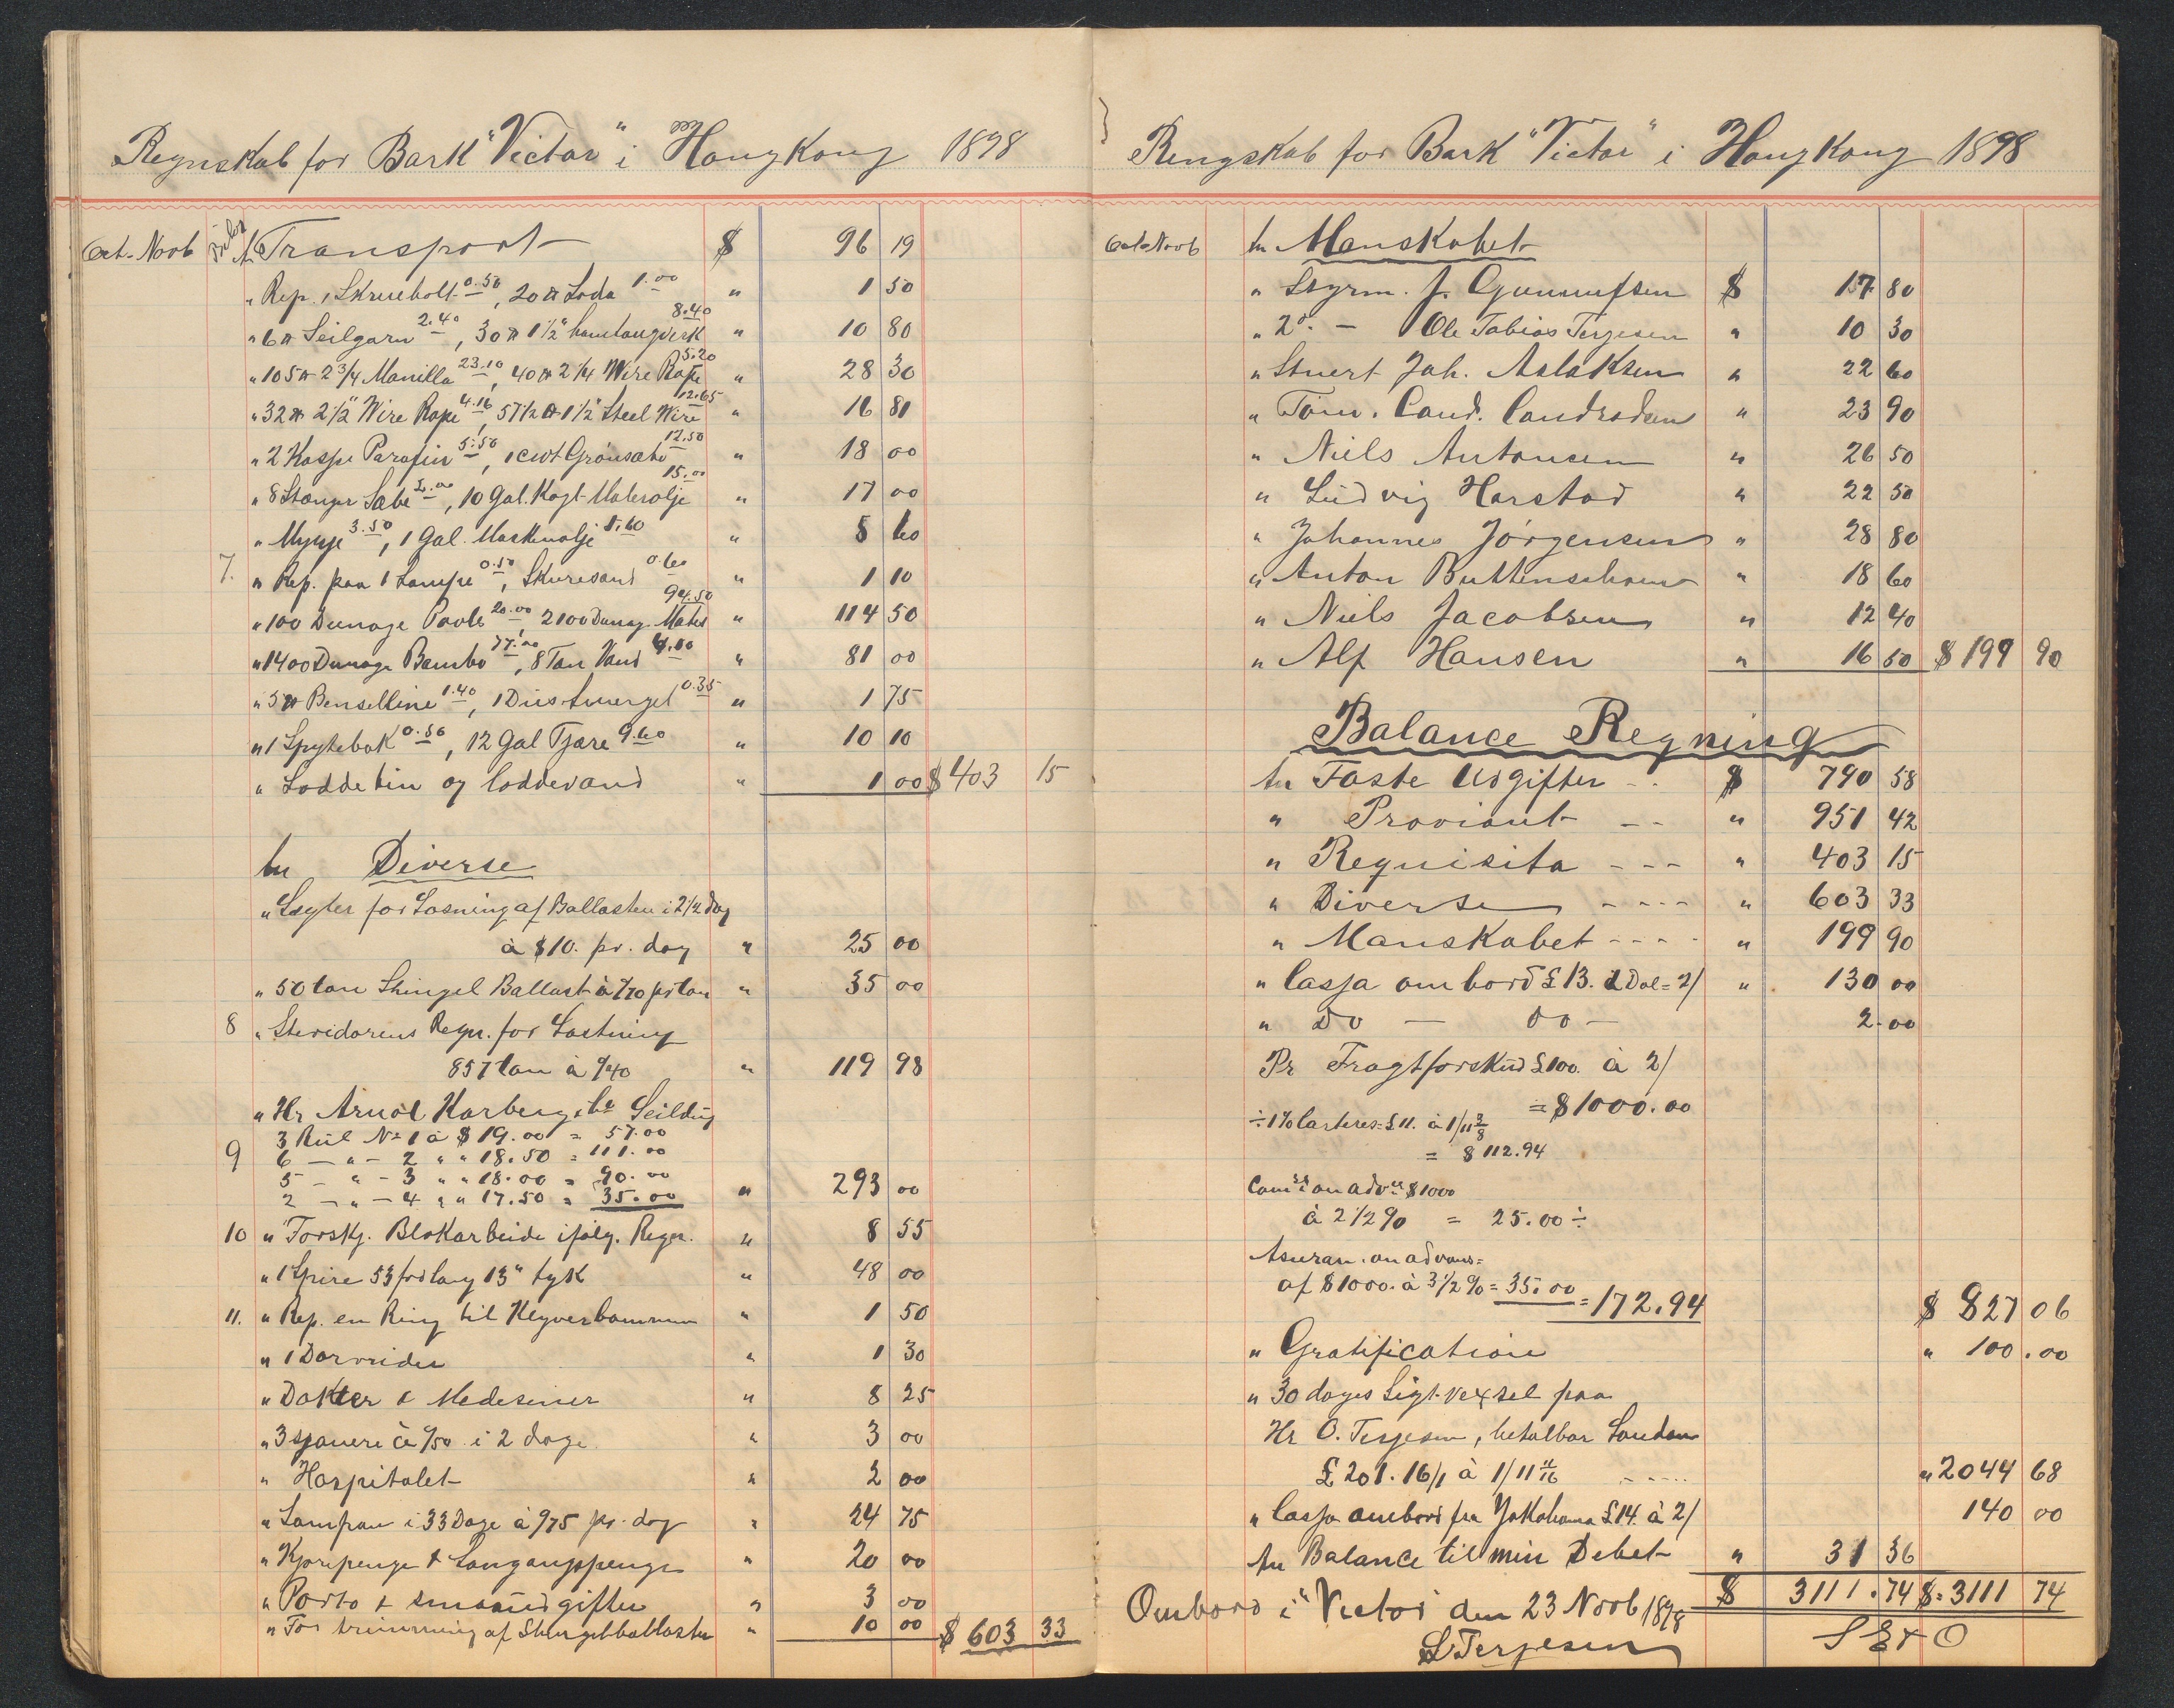 Regnskab for Bark "Victor" i HongKong 1898
Oct. Novb An Transport $ 96 19
" Rep. 1 Skruebolt 0.50, 20 ℔ Soda 1.00 " 1 50
" 6 ℔ Seilgarn 2.40, 30 ℔ 1½" hamtaugverk 8.40 " 10 80
" 105 ℔ 2¾ Manilla 23.10, 40 ℔ 2¼ Wire Rope 5.20 " 28 30
" 32 ℔ 2½" Wire Rope 4.16, 57½ ℔ 1½" Steel Wire 12.65 " 16 81
" 2 Kasse Parafin 5.50, 1 cwt Grønsæbe 12.50 " 18 00
" 8 Stanger Sæbe 2.00, 10 Gal. Kogt Malerolje 15.00 " 17 00
" Mynje 3.50, 1 Gal. Maskinolje 1.60 " 5 60
7. " Rep. paa 1 Lampe 0.50, Skuresand 0.60 " 1 10
" 100 Dunage Poole 20.00, 2100 Dunag. Mates 94.50 " 114 50
" 1400 Dunage Bambo 77.00, 8 Tan Vand 4.00 " 81 00
" 5 ℔ Benselline 1.40, 1 Dus Smergel 0.35 " 1 75
" 1 Spytebak 0.50, 12 Gal Tjære 9.60 " 10 10
" Loddetin og loddevand " 1 00 $ 403 15
An Diverse
" Lægter for Losning af Ballasten i 2½ dag
à $10. pr. dag " 25 00
" 50 tan Shingel Ballast à ¢70 pr tan " 35 00
8 " Stevidorens Regn. for Lastning
857 tan à ¢/40 " 119 98
" Hr Arnol Karberg & Co Seildug
3 Rul No 1 à $ 19.00 = 57.00
9 6 — " – 2 " " 18.50 = 111.00
5 – " – 3 " " 18.00 = 90.00
2 – " – 4 " " 17.50 = 35.00 " 293 00
10 " Forskj. Blokarbeide ifølg. Regn. " 8 55
" 1 Spire 53 fod lang 13" tyk " 48 00
11. " Rep. en Ring til Klyverbommen " 1 50
" 1 Dørvrider " 1 30
" Dokter & Medesiner " 8 25
" 3 sjauere à ¢/50 i 2 dage " 3 00
" Hospitalet " 2 00
" Sampan i 33 Dage à ¢75 pr. dag " 24 75
" Kjørepenge & Landgangspenge " 20 00
" Porto & smaaudgifter " 3 00
" For trimming af Shingelballasten " 10 00 $ 603 33
Rengskab for Bark "Victor" i HongKong 1898
Oct. Novb An Manskabet
" Styrm. J. Gunnufsen $ 17 80
" 2do. — Ole Tobias Terjesen " 10 30
" Stuert Joh. Aslaksen " 22 60
" Tøm. Cand. Candrsdsen " 23 90
" Niels Antonsen " 26 50
" Ludvig Harstad " 22 50
" Johannes Jørgensen " 28 80
" Anton Buttenschøen " 18 60
" Niels Jacobsen " 12 40
" Alf Hansen " 16 50 $ 199 90
Balance Regning
An Faste Udgifter - - $ 790 58
" Proviant - - " 951 42
" Requisita - - - " 403 15
" Diverse - - - - " 603 33
" Manskabet - - - - " 199 90
" Cassa ombord £ 13. 1 Dol = 2/ " 130 00
" Do — Do — 2.00
Pr Fragtforskud £100. à 2/
= $ 1000.00
÷ 1% Carteres: £ 11. à 1/11 3/8
= $ 112.94
Comisn on adv $ 1000
à 2½% = 25.00 ÷
Asuran. on advans =
af $ 1000. à 3½% = 35.00 = 172.94 $ 827 06
" Gratification " 100.00
" 30 dages Sigt-vexsel paa
Hr O. Terjesen, betalbar London
£ 201. 16/1 à 1/11 11/16 - - - - " 2044 68
" Cassa ombord fra Yokohama £ 14. à 2/ 140 00
An Balance til min Debet " 31 36
$ 3111.74 $. 3111 74
Ombord i "Victor den 23 Novb 1898
S E & O
S Terjesen